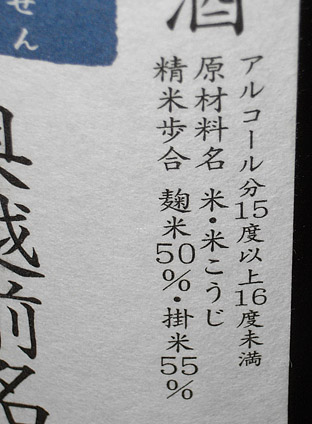 酒
アルコール分15度以上16度未満
原材料名 米・米こうじ
精米歩合 麹米50%・掛米55%
せん
奥越前名